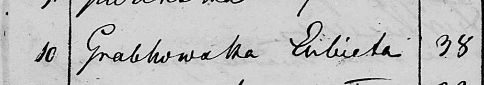 10 Grabkowska Elzbieta 38